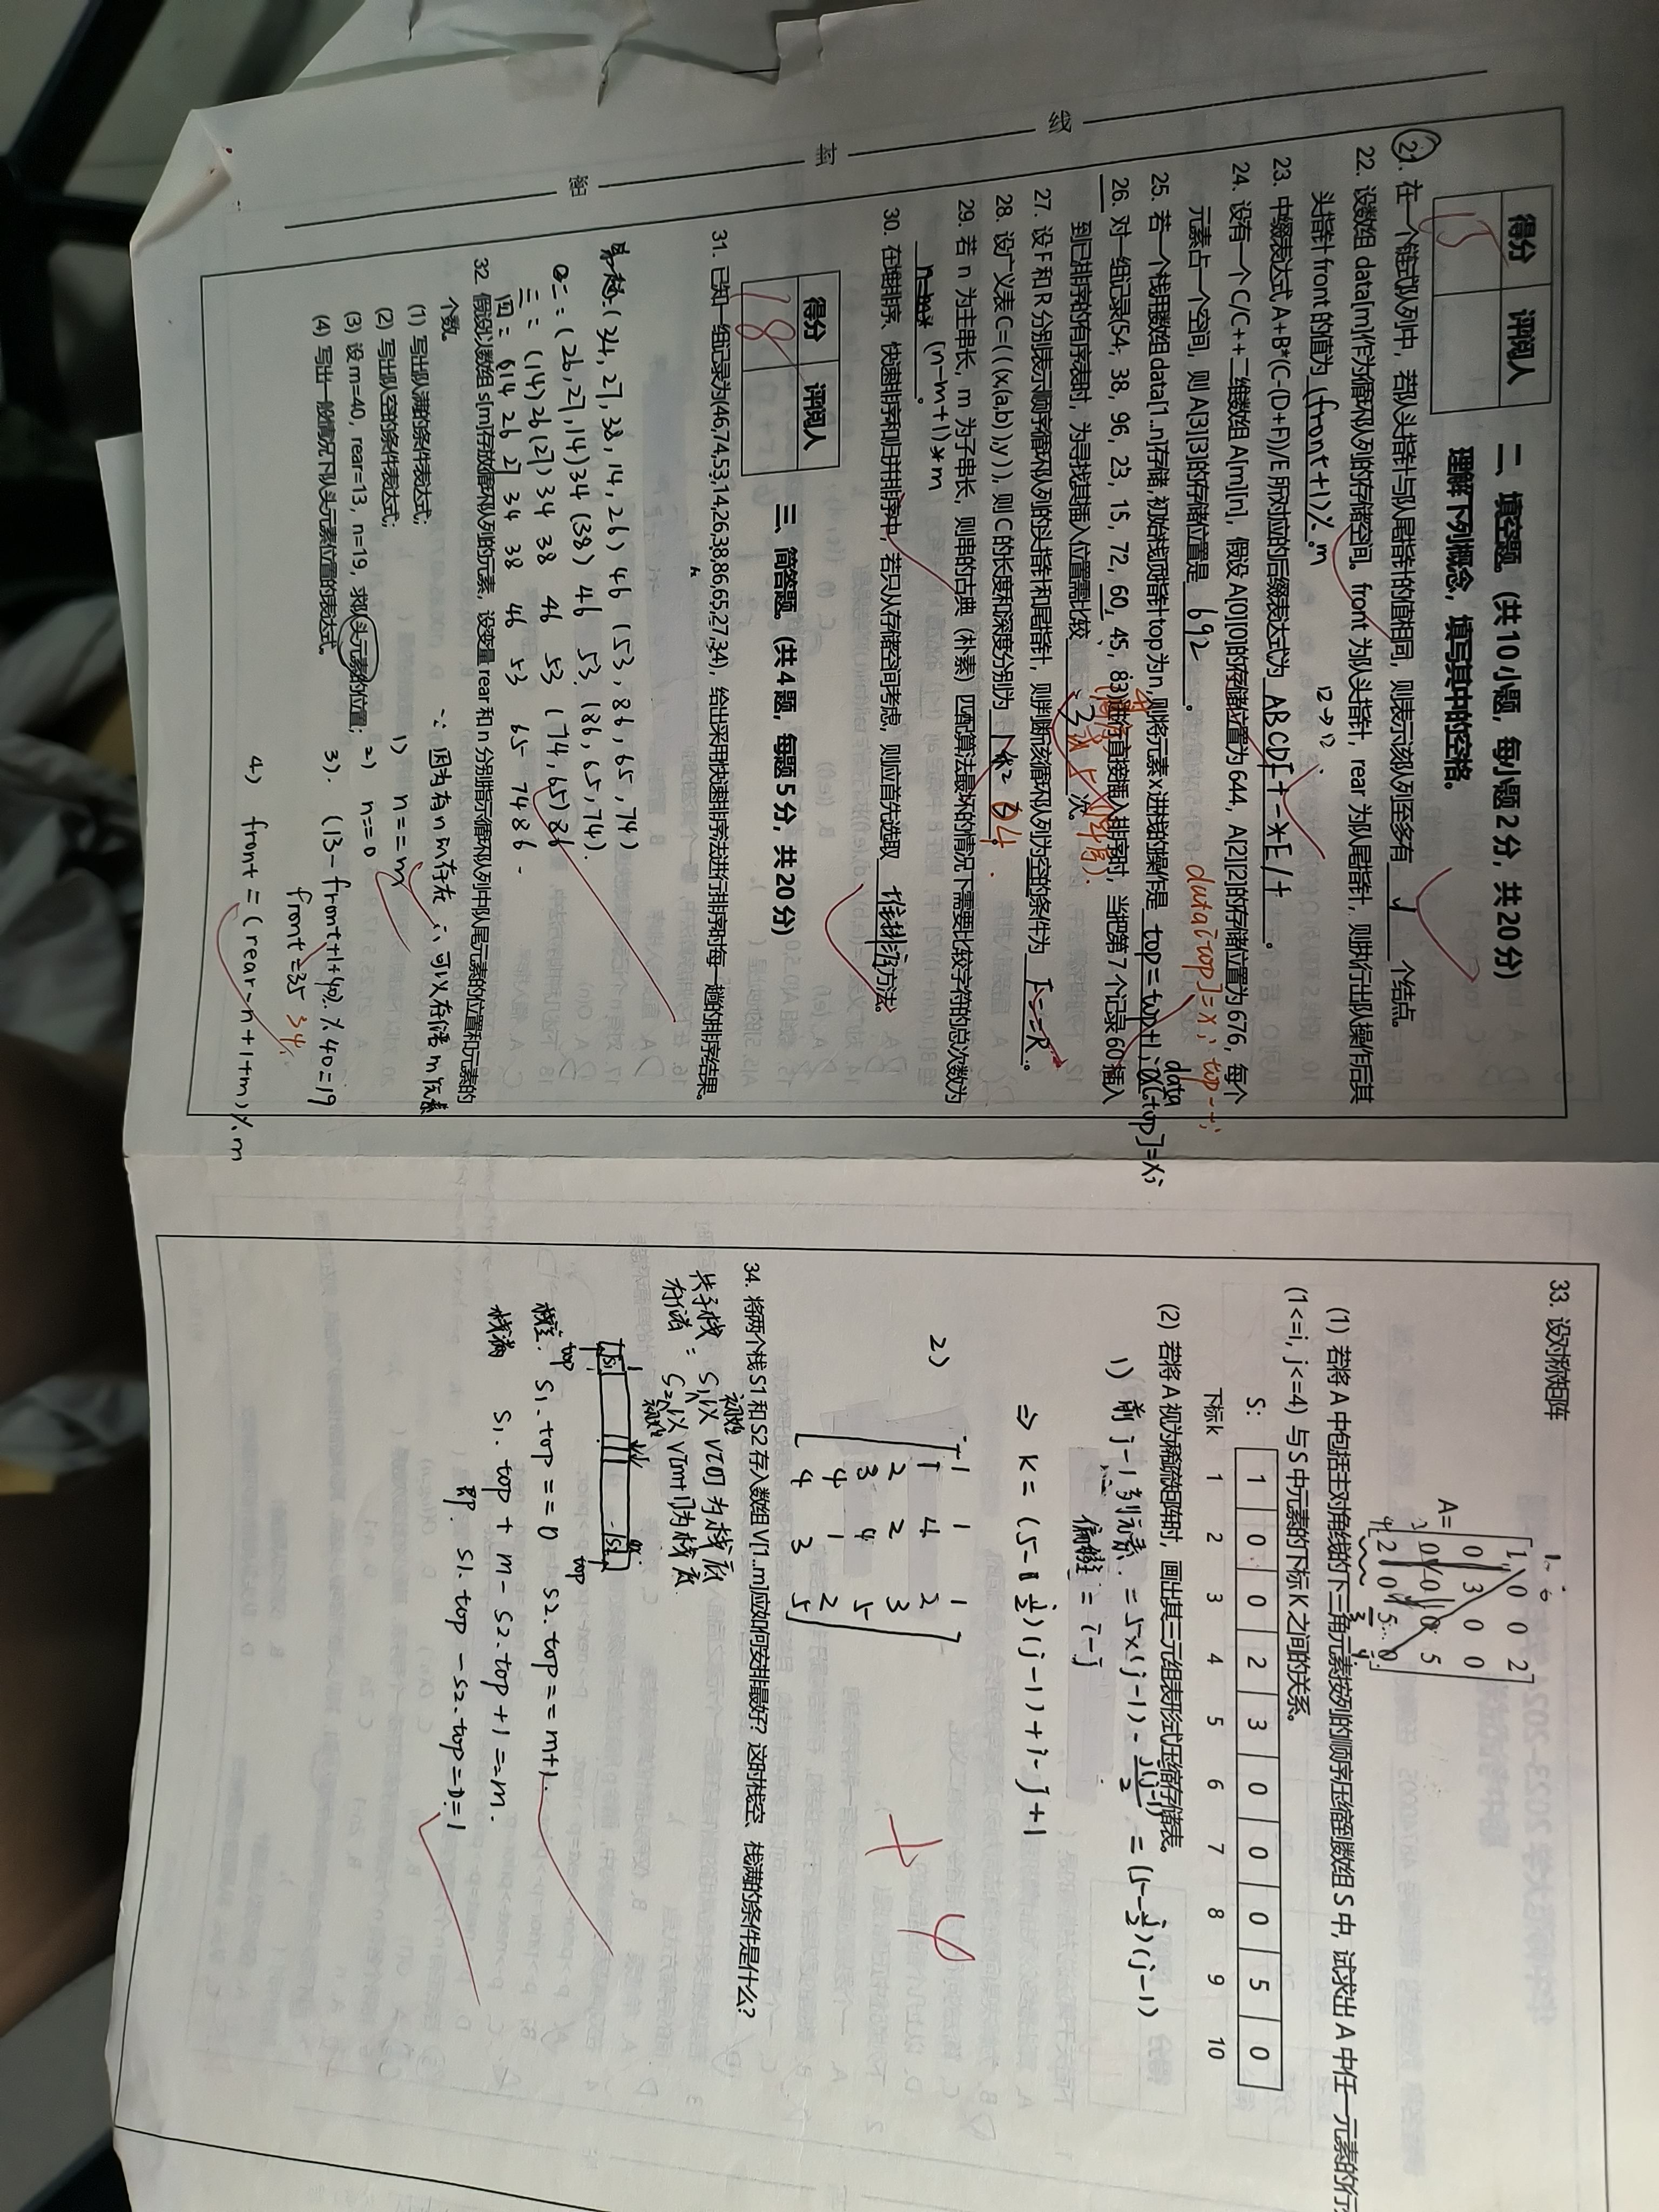 线
封
密
得分 评阅人
15
二、填空题。(共10小题，每小题2分，共20分)
理解下列概念，填写其中的空格。
21. 在一个链式队列中，若队头指针与队尾指针的值相同，则表示该队列至多有 1 个结点。
22. 设数组 data[m]作为循环队列的存储空间。front 为队头指针，rear 为队尾指针，则执行出队操作后其
头指针 front 的值为 (front+1)%m
12→12
23. 中缀表达式 A+B*(C-(D+F))/E 所对应的后缀表达式为 ABCDF+-*E/+ 。
24. 设有一个 C/C++二维数组 A[m][n]，假设 A[0][0]的存储位置为 644，A[2][2]的存储位置为 676，每个
元素占一个空间，则 A[3][3]的存储位置是 692 。
data[top]=x; top--;
25. 若一个栈用数组 data[1..n]存储,初始栈顶指针 top 为 n,则将元素 x 进栈的操作是 top=top+1; data[top]=x;
26. 对一组记录(54，38，96，23，15，72，60，45，83)进行直接插入排序时，当把第 7 个记录 60 插入
到已排序的有序表时，为寻找其插入位置需比较 3 次。
27. 设 F 和 R 分别表示顺序循环队列的头指针和尾指针，则判断该循环队列为空的条件为 F==R 。
28. 设广义表 C=(((x,(a,b)),y))，则 C 的长度和深度分别为 1 4 。
29. 若 n 为主串长，m 为子串长，则串的古典（朴素）匹配算法最坏的情况下需要比较字符的总次数为
(n-m+1)*m 。
30. 在堆排序、快速排序和归并排序中，若只从存储空间考虑，则应首先选取 堆排序 方法。
得分 评阅人
18
三、简答题。(共4题，每题5分，共20分)
31. 已知一组记录为(46,74,53,14,26,38,86,65,27,34)，给出采用快速排序法进行排序时每一趟的排序结果。
(34, 27, 38, 14, 26) 46 (53, 86, 65, 74)
二=(26, 27, 14) 34 (38) 46 53 (86, 65, 74).
三= (14) 26 (27) 34 38 46 53 (74, 65) 86
四= 14 26 27 34 38 46 53 65 74 86
32. 假设以数组 s[m]存放循环队列的元素，设变量 rear 和 n 分别指示循环队列中队尾元素的位置和元素的
个数。
(1) 写出队满的条件表达式；
(2) 写出队空的条件表达式；
(3) 设 m=40，rear=13，n=19，求队头元素的位置；
(4) 写出一般情况下队头元素位置的表达式。
∵ 因为有n的存在 ∴ 可以存储m个元素
1) n==m
2) n==0
3). (13-front+1+40)%40=19
front=35 34
4) front=(rear-n+1+m)%m
33. 设对称矩阵
A=
1 0 0 2
0 3 0 0
0 0 0 5
2 0 5 0
(1) 若将 A 中包括主对角线的下三角元素按列的顺序压缩到数组 S 中，试求出 A 中任一元素的行
(1<=i, j<=4) 与 S 中元素的下标 K 之间的关系。
S: 1 0 0 2 3 0 0 0 5 0
下标k 1 2 3 4 5 6 7 8 9 10
(2) 若将 A 视为稀疏矩阵时，画出其三元组表形式压缩存储表。
1) 前j-1列元素 = 5×(j-1) - j(j-1)/2 = (5-j/2)(j-1)
偏移 = i-j
⇒ K = (5-j/2)(j-1)+i-j+1
2)
1 1 1
1 4 2
2 2 3
3 4 5
4 1 2
4 3 5
+4
34. 将两个栈 S1 和 S2 存入数组 V[1..m]应如何安排最好？这时栈空、栈满的条件是什么？
共享栈 S1以V[0]为栈底
存储 = S2以V[m+1]为栈底
S1
S2
top
top
栈空: S1.top==0 S2.top==m+1.
栈满 S1.top+m-S2.top+1==m.
即 S1.top-S2.top=-1